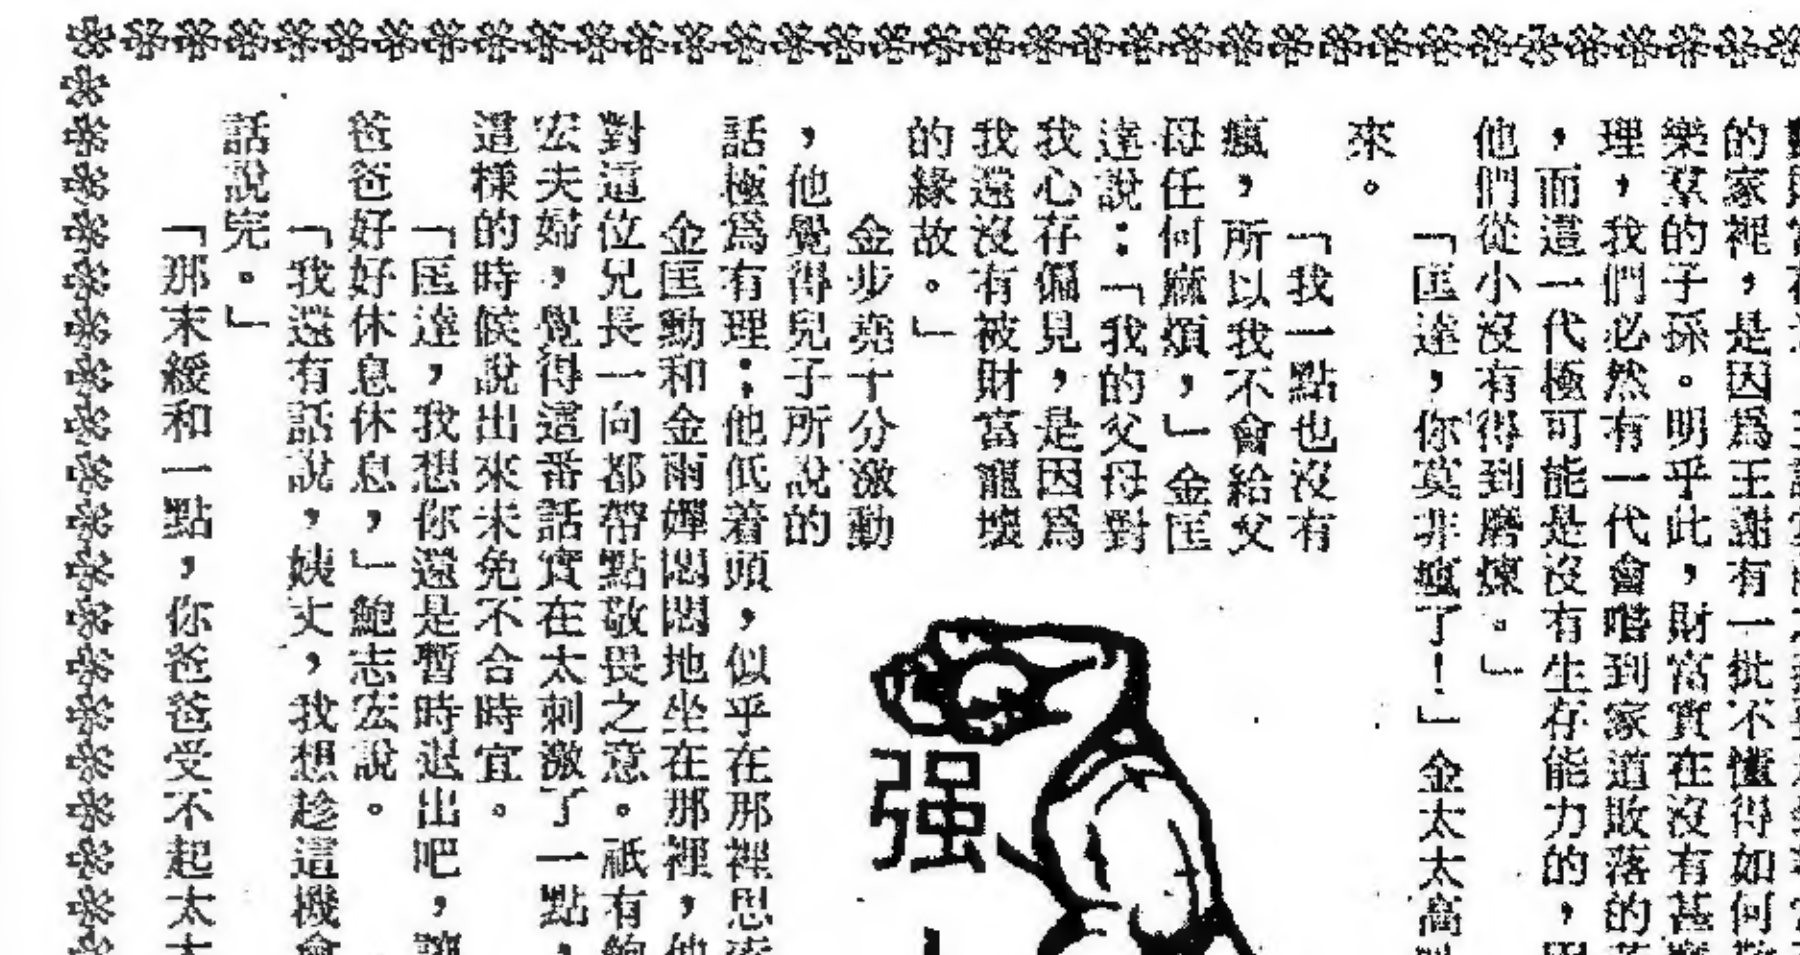 的家裡，是因爲王謝有一批不懂得如何
樂羣的子孫。明乎此，財富實在沒有甚
理，我們必然有一代會嚐到家道敗落的
，而這一代極可能是沒有生存能力的，因
他們從小沒有得到磨煉。」
「匡達，你莫非瘋了！」金太太高
來。
「我一點也沒有
瘋，所以我不會給父
母任何麻煩，」金匡
達說：「我的父母對
我心存偏見，是因爲
我還沒有被財富寵壞
的緣故。」
金步堯十分激動
，他覺得兒子所說的
話極爲有理；他低着頭，似乎在那裡思
金匡勳和金雨嬋悶悶地坐在那裡，他
對這位兄長一向都帶點敬畏之意。祇有鮑
宏夫婦，覺得這番話實在太刺激了一點，
這樣的時候說出來未免不合時宜。
「匡達，我想你還是暫時退出吧，讓
爸爸好好休息休息，」鮑志宏說。
「我還有話說，姨丈，我想趁這機會
話說完。」
「那末緩和一點，你爸爸受不起太大
强